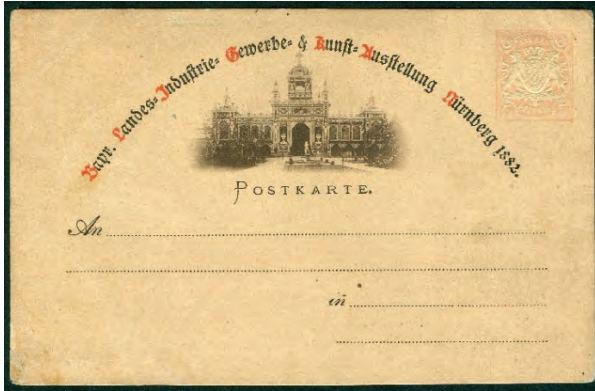 Bayr. Landes-Industrie- Gewerbe- & Kunst-Ausstellung Nürnberg 1882.
POSTKARTE.
An
in